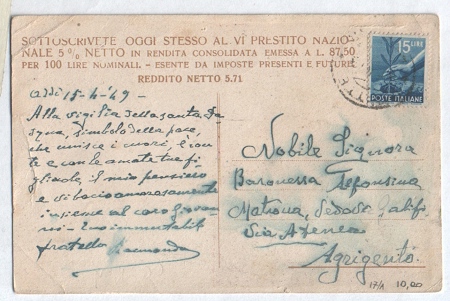 SOTTOSCRIVETE OGGI STESSO AL VI PRESTITO NAZIO-
NALE 5% NETTO IN RENDITA CONSOLIDATA EMESSA A L. 87,50
PER 100 LIRE NOMINALI. - ESENTE DA IMPOSTE PRESENTI E FUTURE
REDDITO NETTO 5.71
15 LIRE
POSTE ITALIANE
addì 15-4-49-
Alla vigilia della santa Pa
squa, simbolo della pace,
che unisce i cuori, è con
te e con le amate tue fi
gliuole, il mio pensiero
e vi bacio amorosamente
insieme al caro Giovan
ni - Tuo immutabile
fratello Raimondo
Nobile Signora
Baronessa
Matrona, Vedova
Via Atenea
Agrigento
17/A 10,00